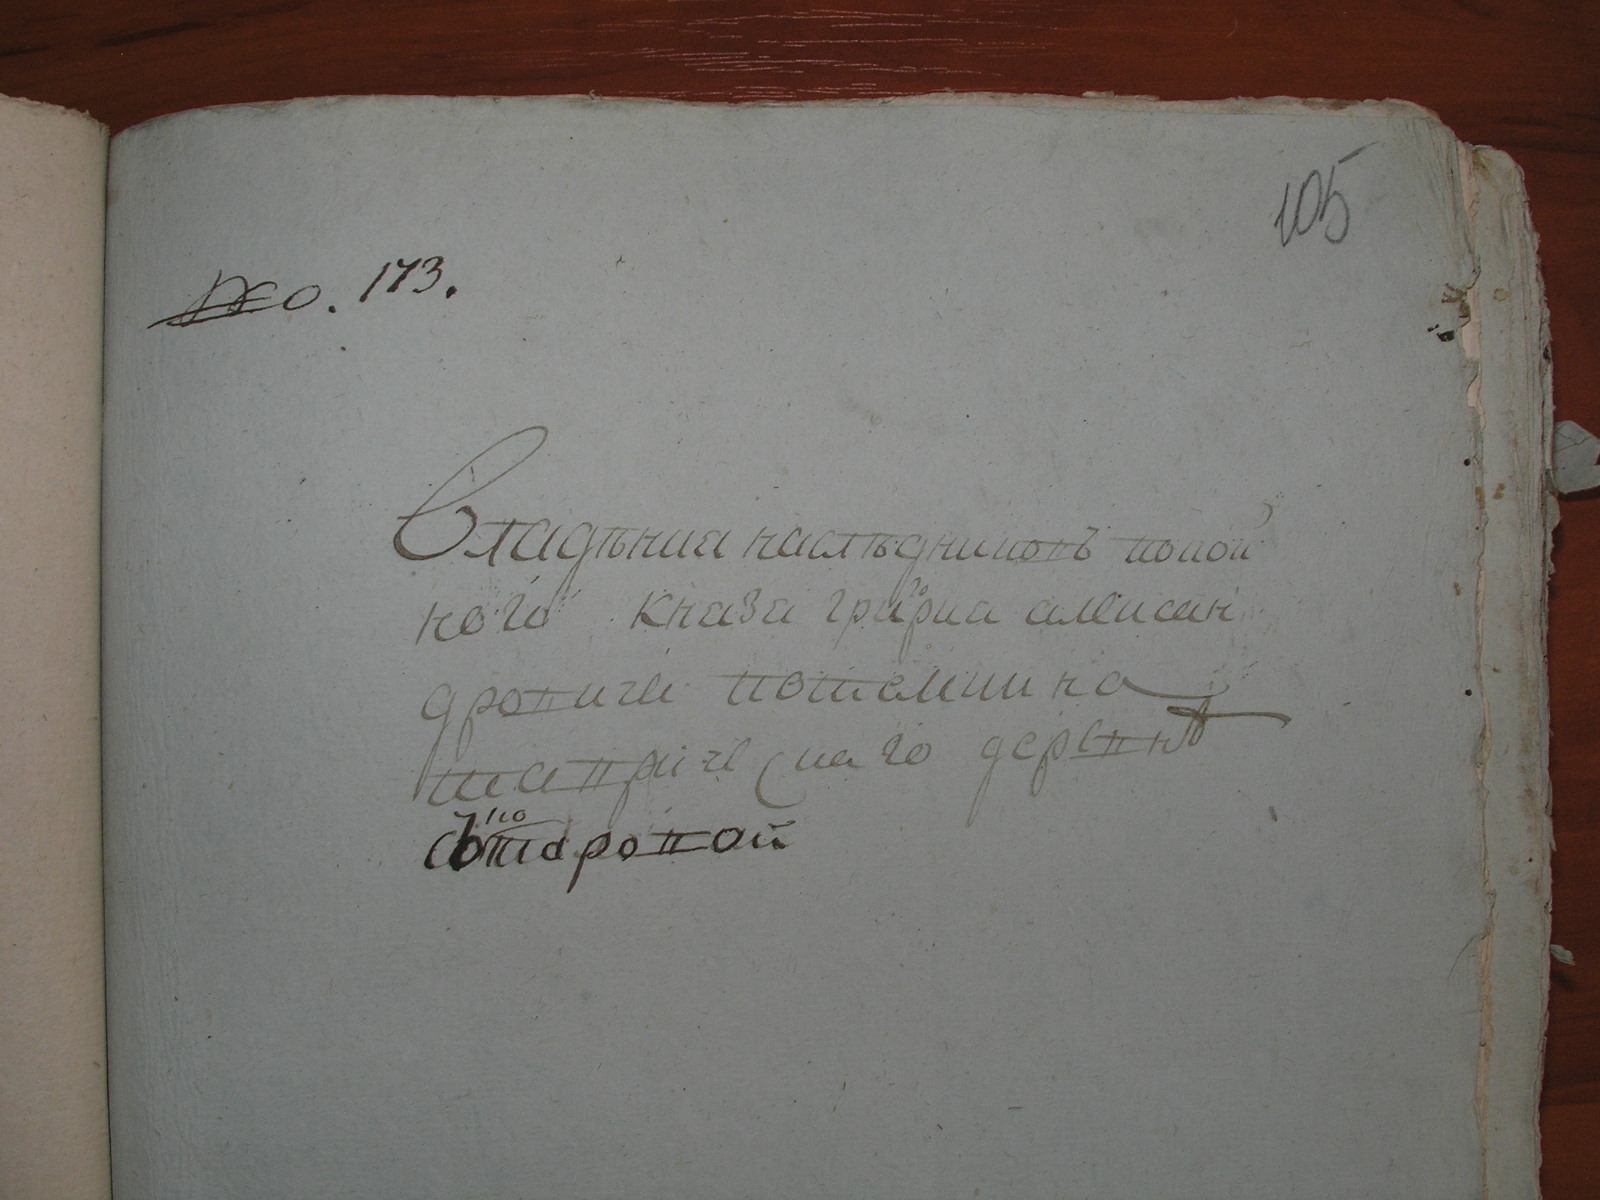 105
№. 173.
Владѣния наслѣдниковъ покой
ного князя григория алексан
дровича потемкина
тавриче скаго деревнѣ